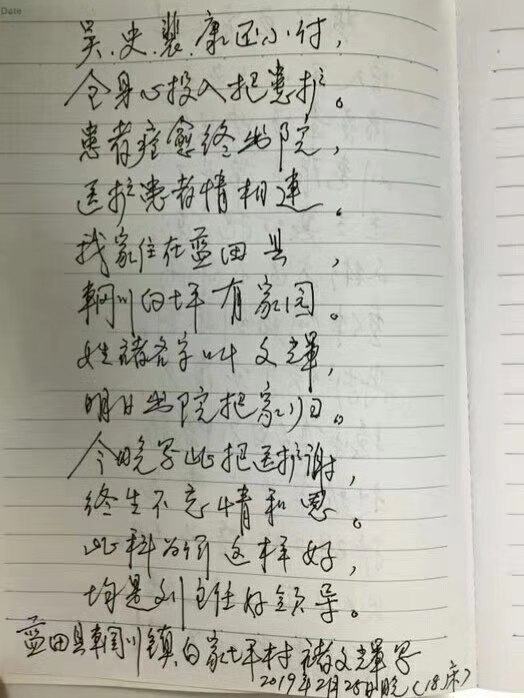 Date
吴、史、裴、康还小付，
全身心投入把患护。
患者痊愈终出院，
医护患者情相连。
我家住在蓝田县，
辋川白坪有家园。
姓褚名字叫文辉，
明日出院把家归。
今晚写此把医护谢，
终生不忘情和恩。
此科为何这样好，
均是刘主任好领导。
蓝田县辋川镇白家坪村褚文辉写
2019年2月25日晚（18床）